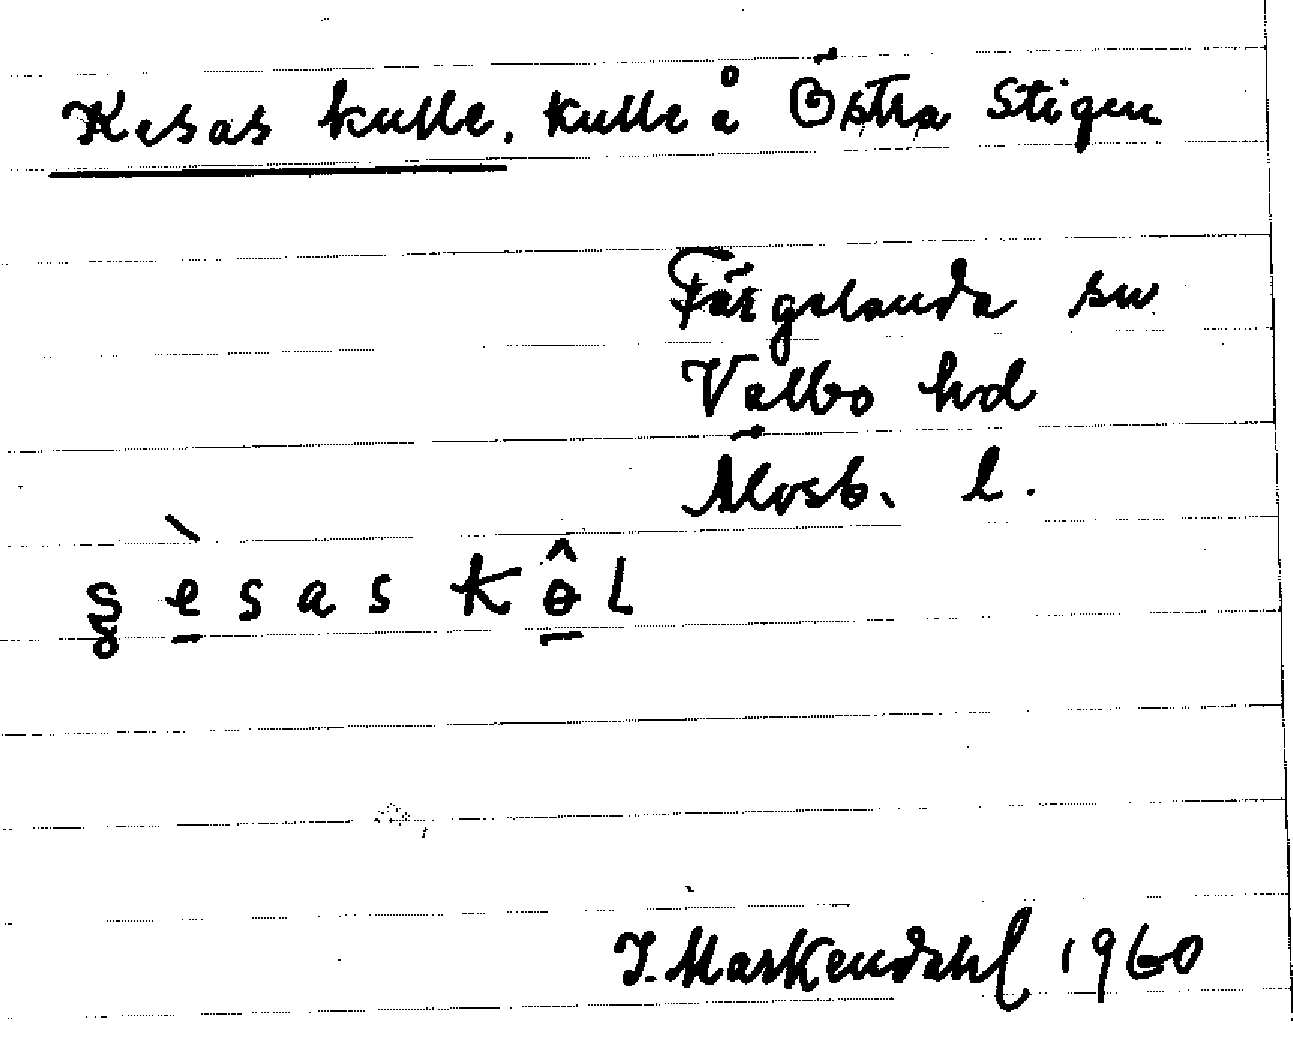 Kesas kulle. Kulle å Östra Stigen
Färgelanda sn
Valbo hd
Älvsb. l.
kŏ̂l
I. Markendahl 1960